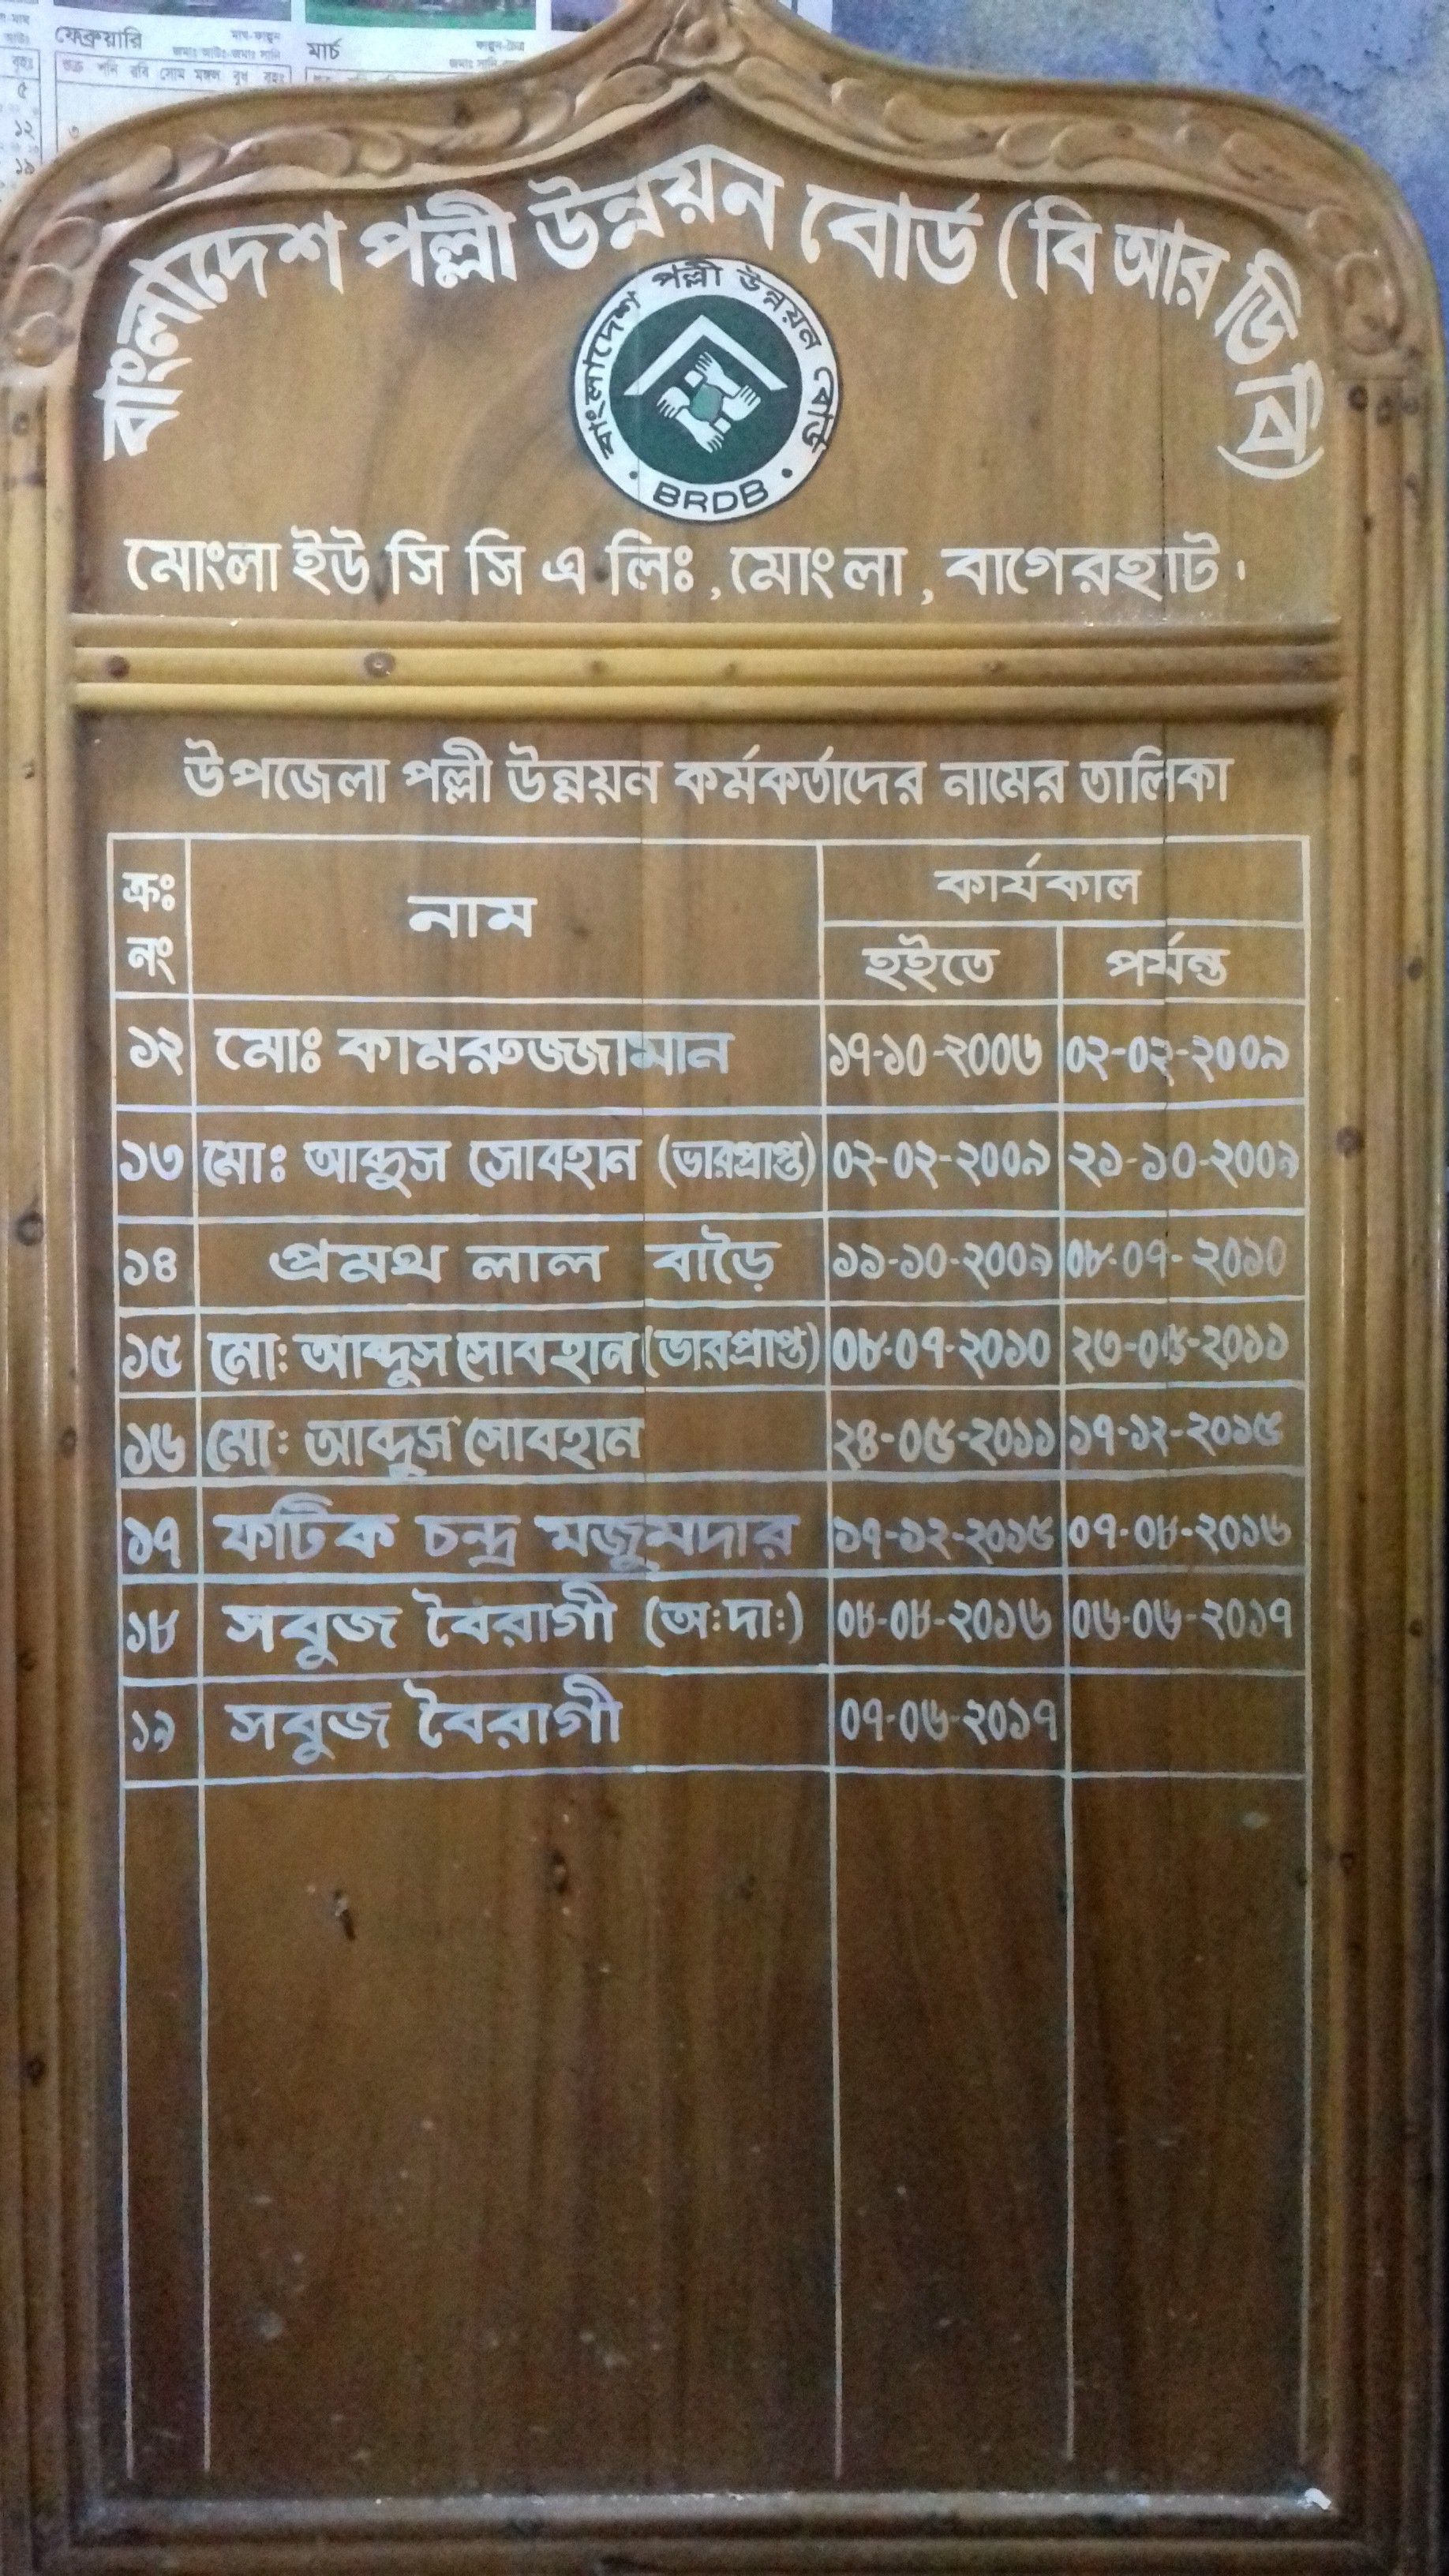 ফেব্রুয়ারি
মার্চ
শুক্র শনি রবি সোম মঙ্গল বুধ বৃহঃ
বৃহঃ
৫
১২
৩
১৯
বাংলাদেশ পল্লী উন্নয়ন বোর্ড (বি আর ডি বি)
বাংলাদেশ পল্লী উন্নয়ন বোর্ড
BRDB
মোংলা ইউ সি সি এ লিঃ, মোংলা, বাগেরহাট।
উপজেলা পল্লী উন্নয়ন কর্মকর্তাদের নামের তালিকা
ক্রঃ নং নাম কার্যকাল
হইতে পর্যন্ত
১২ মোঃ কামরুজ্জামান ১৭-১০-২০০৬ ০২-০২-২০০৯
১৩ মোঃ আব্দুস সোবহান (ভারপ্রাপ্ত) ০২-০২-২০০৯ ২১-১০-২০০৯
১৪ প্রমথ লাল বাড়ৈ ১১-১০-২০০৯ ০৮-০৭-২০১০
১৫ মো: আব্দুস সোবহান (ভারপ্রাপ্ত) ০৮-০৭-২০১০ ২৩-০৫-২০১১
১৬ মো: আব্দুস সোবহান ২৪-০৫-২০১১ ১৭-১২-২০১৫
১৭ ফটিক চন্দ্র মজুমদার ১৭-১২-২০১৫ ০৭-০৮-২০১৬
১৮ সবুজ বৈরাগী (অ:দা:) ০৮-০৮-২০১৬ ০৬-০৬-২০১৭
১৯ সবুজ বৈরাগী ০৭-০৬-২০১৭